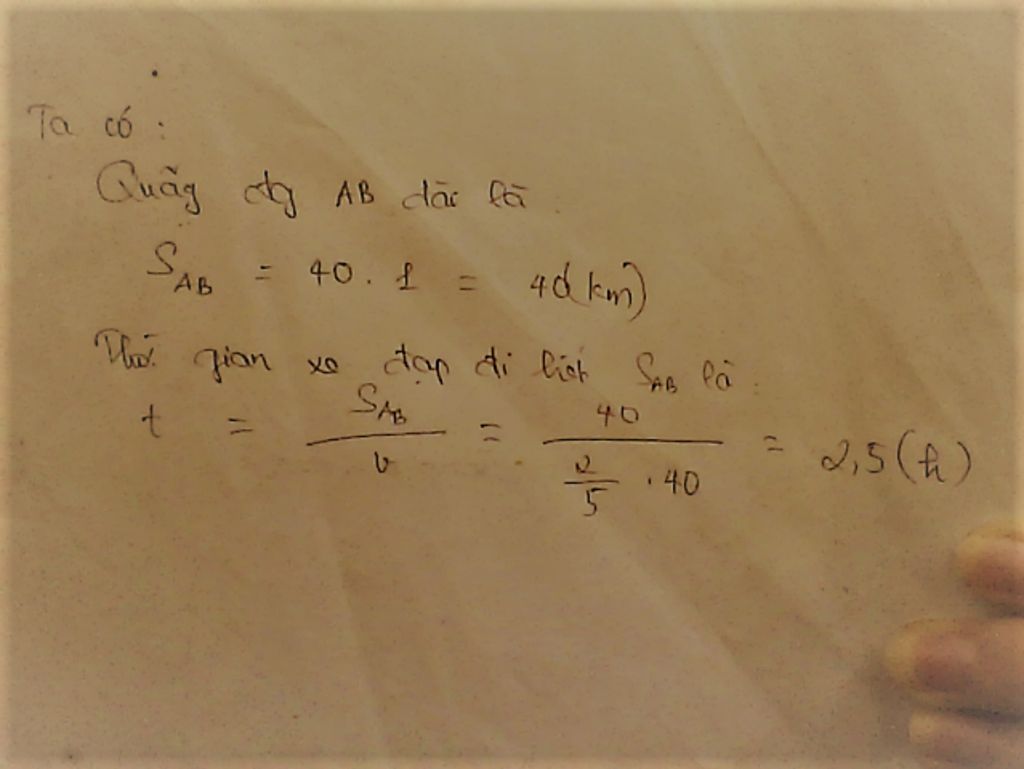 Ta có :
Quãg đg AB dài là
S_AB = 40 . 1 = 40(km)
Thời gian xe đạp đi hết S_AB là :
t = S_AB / v = 40 / (2/5 . 40) = 2,5 (h)